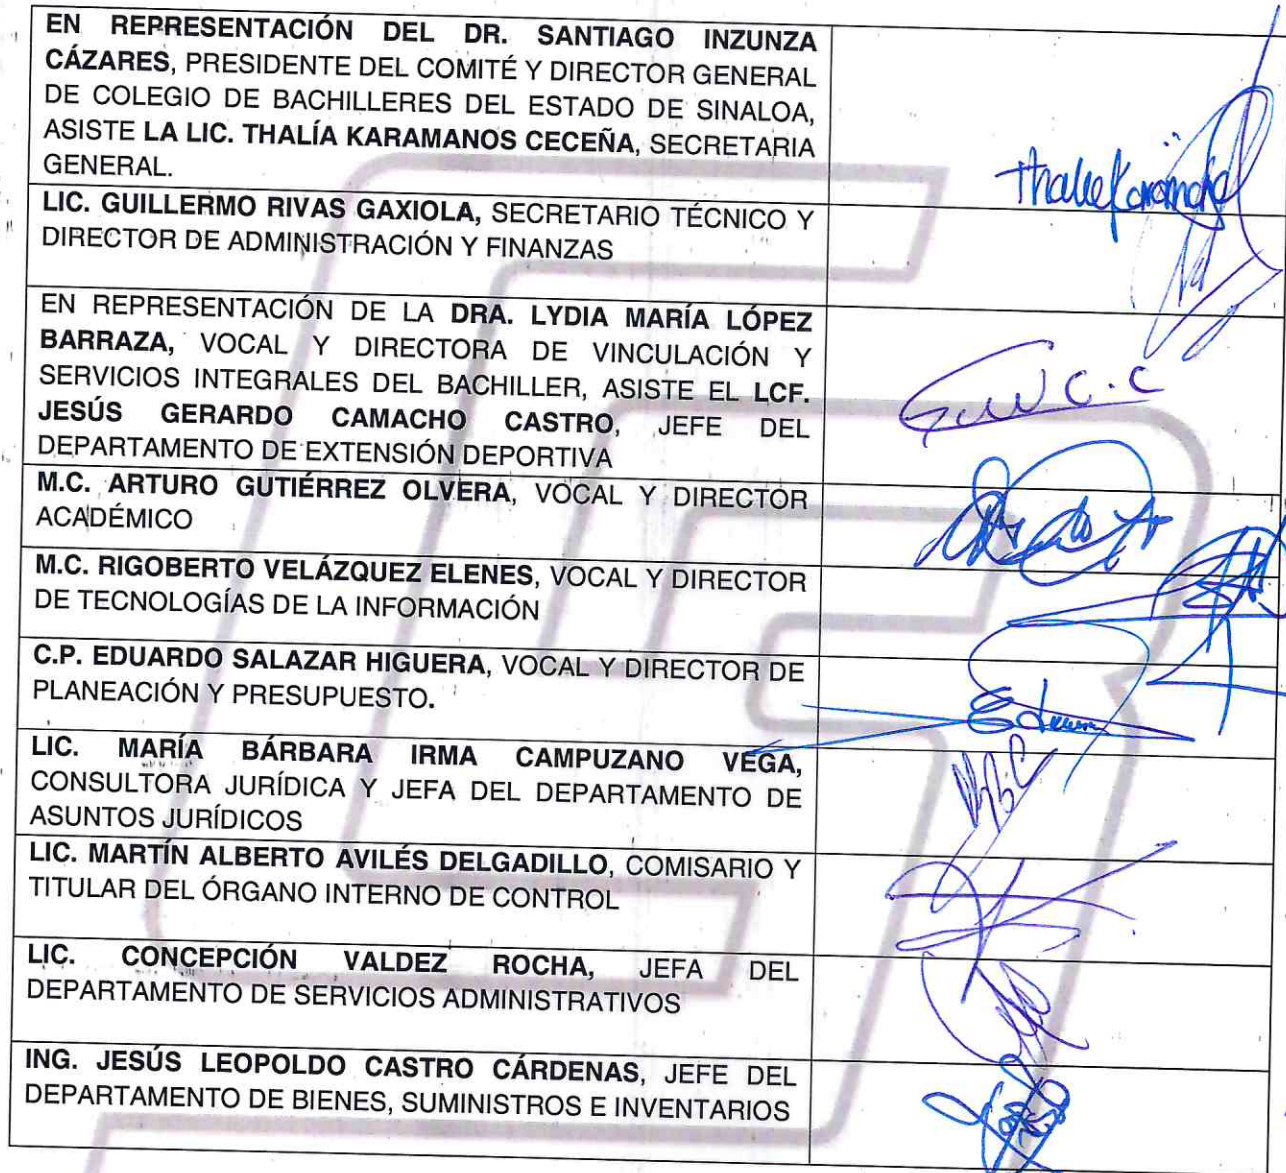 EN REPRESENTACIÓN DEL DR. SANTIAGO INZUNZA
CÁZARES, PRESIDENTE DEL COMITÉ Y DIRECTOR GENERAL
DE COLEGIO DE BACHILLERES DEL ESTADO DE SINALOA,
ASISTE LA LIC. THALÍA KARAMANOS CECEÑA, SECRETARIA
GENERAL.
LIC. GUILLERMO RIVAS GAXIOLA, SECRETARIO TÉCNICO Y
DIRECTOR DE ADMINISTRACIÓN Y FINANZAS
EN REPRESENTACIÓN DE LA DRA. LYDIA MARÍA LÓPEZ
BARRAZA, VOCAL Y DIRECTORA DE VINCULACIÓN Y
SERVICIOS INTEGRALES DEL BACHILLER, ASISTE EL LCF.
JESÚS GERARDO CAMACHO CASTRO, JEFE DEL
DEPARTAMENTO DE EXTENSIÓN DEPORTIVA
M.C. ARTURO GUTIÉRREZ OLVERA, VOCAL Y DIRECTOR
ACADÉMICO
M.C. RIGOBERTO VELÁZQUEZ ELENES, VOCAL Y DIRECTOR
DE TECNOLOGÍAS DE LA INFORMACIÓN
C.P. EDUARDO SALAZAR HIGUERA, VOCAL Y DIRECTOR DE
PLANEACIÓN Y PRESUPUESTO.
LIC. MARÍA BÁRBARA IRMA CAMPUZANO VEGA,
CONSULTORA JURÍDICA Y JEFA DEL DEPARTAMENTO DE
ASUNTOS JURÍDICOS
LIC. MARTÍN ALBERTO AVILÉS DELGADILLO, COMISARIO Y
TITULAR DEL ÓRGANO INTERNO DE CONTROL
LIC. CONCEPCIÓN VALDEZ ROCHA, JEFA DEL
DEPARTAMENTO DE SERVICIOS ADMINISTRATIVOS
ING. JESÚS LEOPOLDO CASTRO CÁRDENAS, JEFE DEL
DEPARTAMENTO DE BIENES, SUMINISTROS E INVENTARIOS